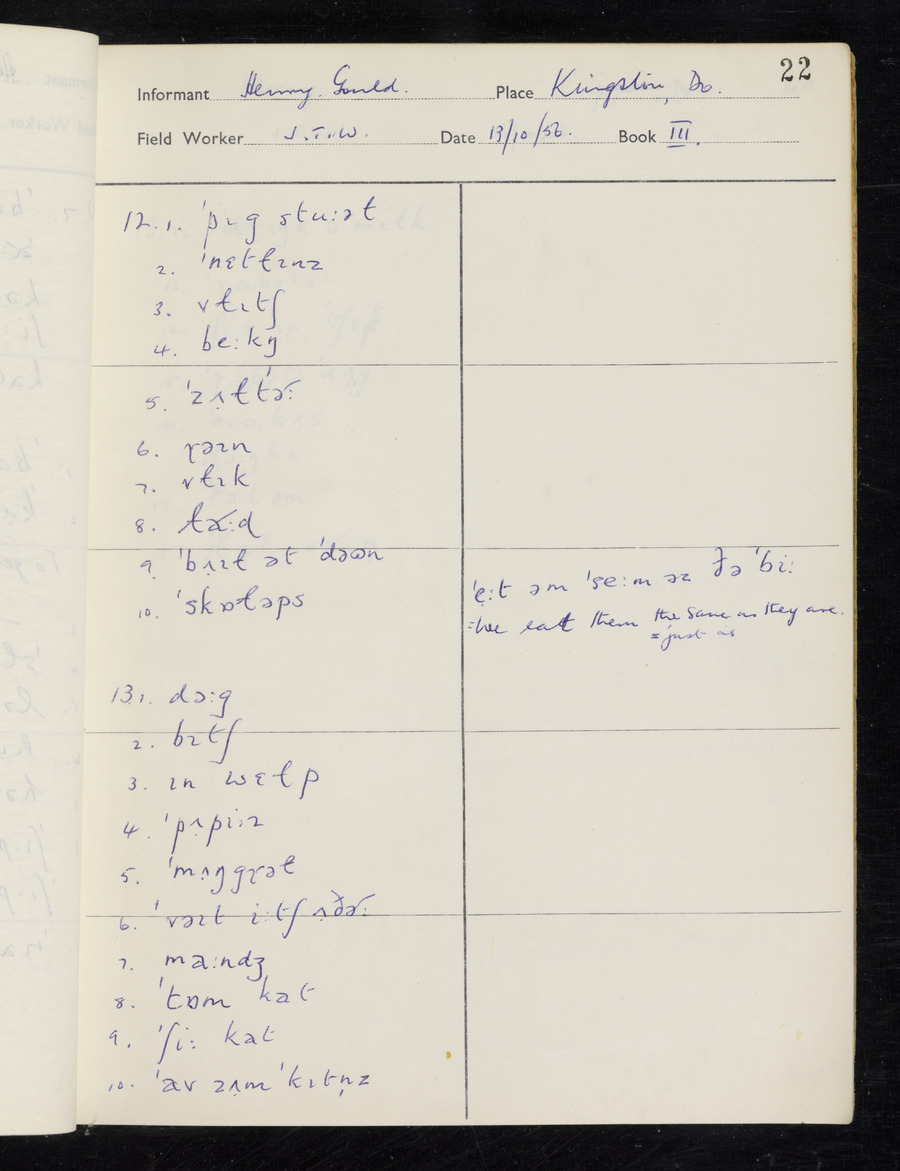 22
Informant Henry Gould. Place Kingston, Do.
Field Worker J.T.W. Date 13/10/56. Book III.
12.1. ˈpɪg stuːət
2. ˈnɛtɫɪnz
3. vɫɪtʃ
4. beːkŋ̍
5. ˈzʌɫtəɽː
6. ɽəɪn
7. vɫɪk
8. ɫaɽːd
9. ˈbʌɪɫ ət ˈdəʊn
10. ˈskɒɫəps
ˈẹːt əm ˈseːm əz ðə ˈbiː
=We eat them the same as they are.
= just as
13.1. dɔːg
2. bɪtʃ
3. ɪn wɛɫp
4. ˈpʌpiːz
5. ˈmʌŋgɽəɫ
6. ˈvəɪt iːtʃ ʌðəɽː
7. maːndʒ
8. ˈtɒm kat
9. ˈʃiː kat
10. ˈav zʌm ˈkɪtn̩z